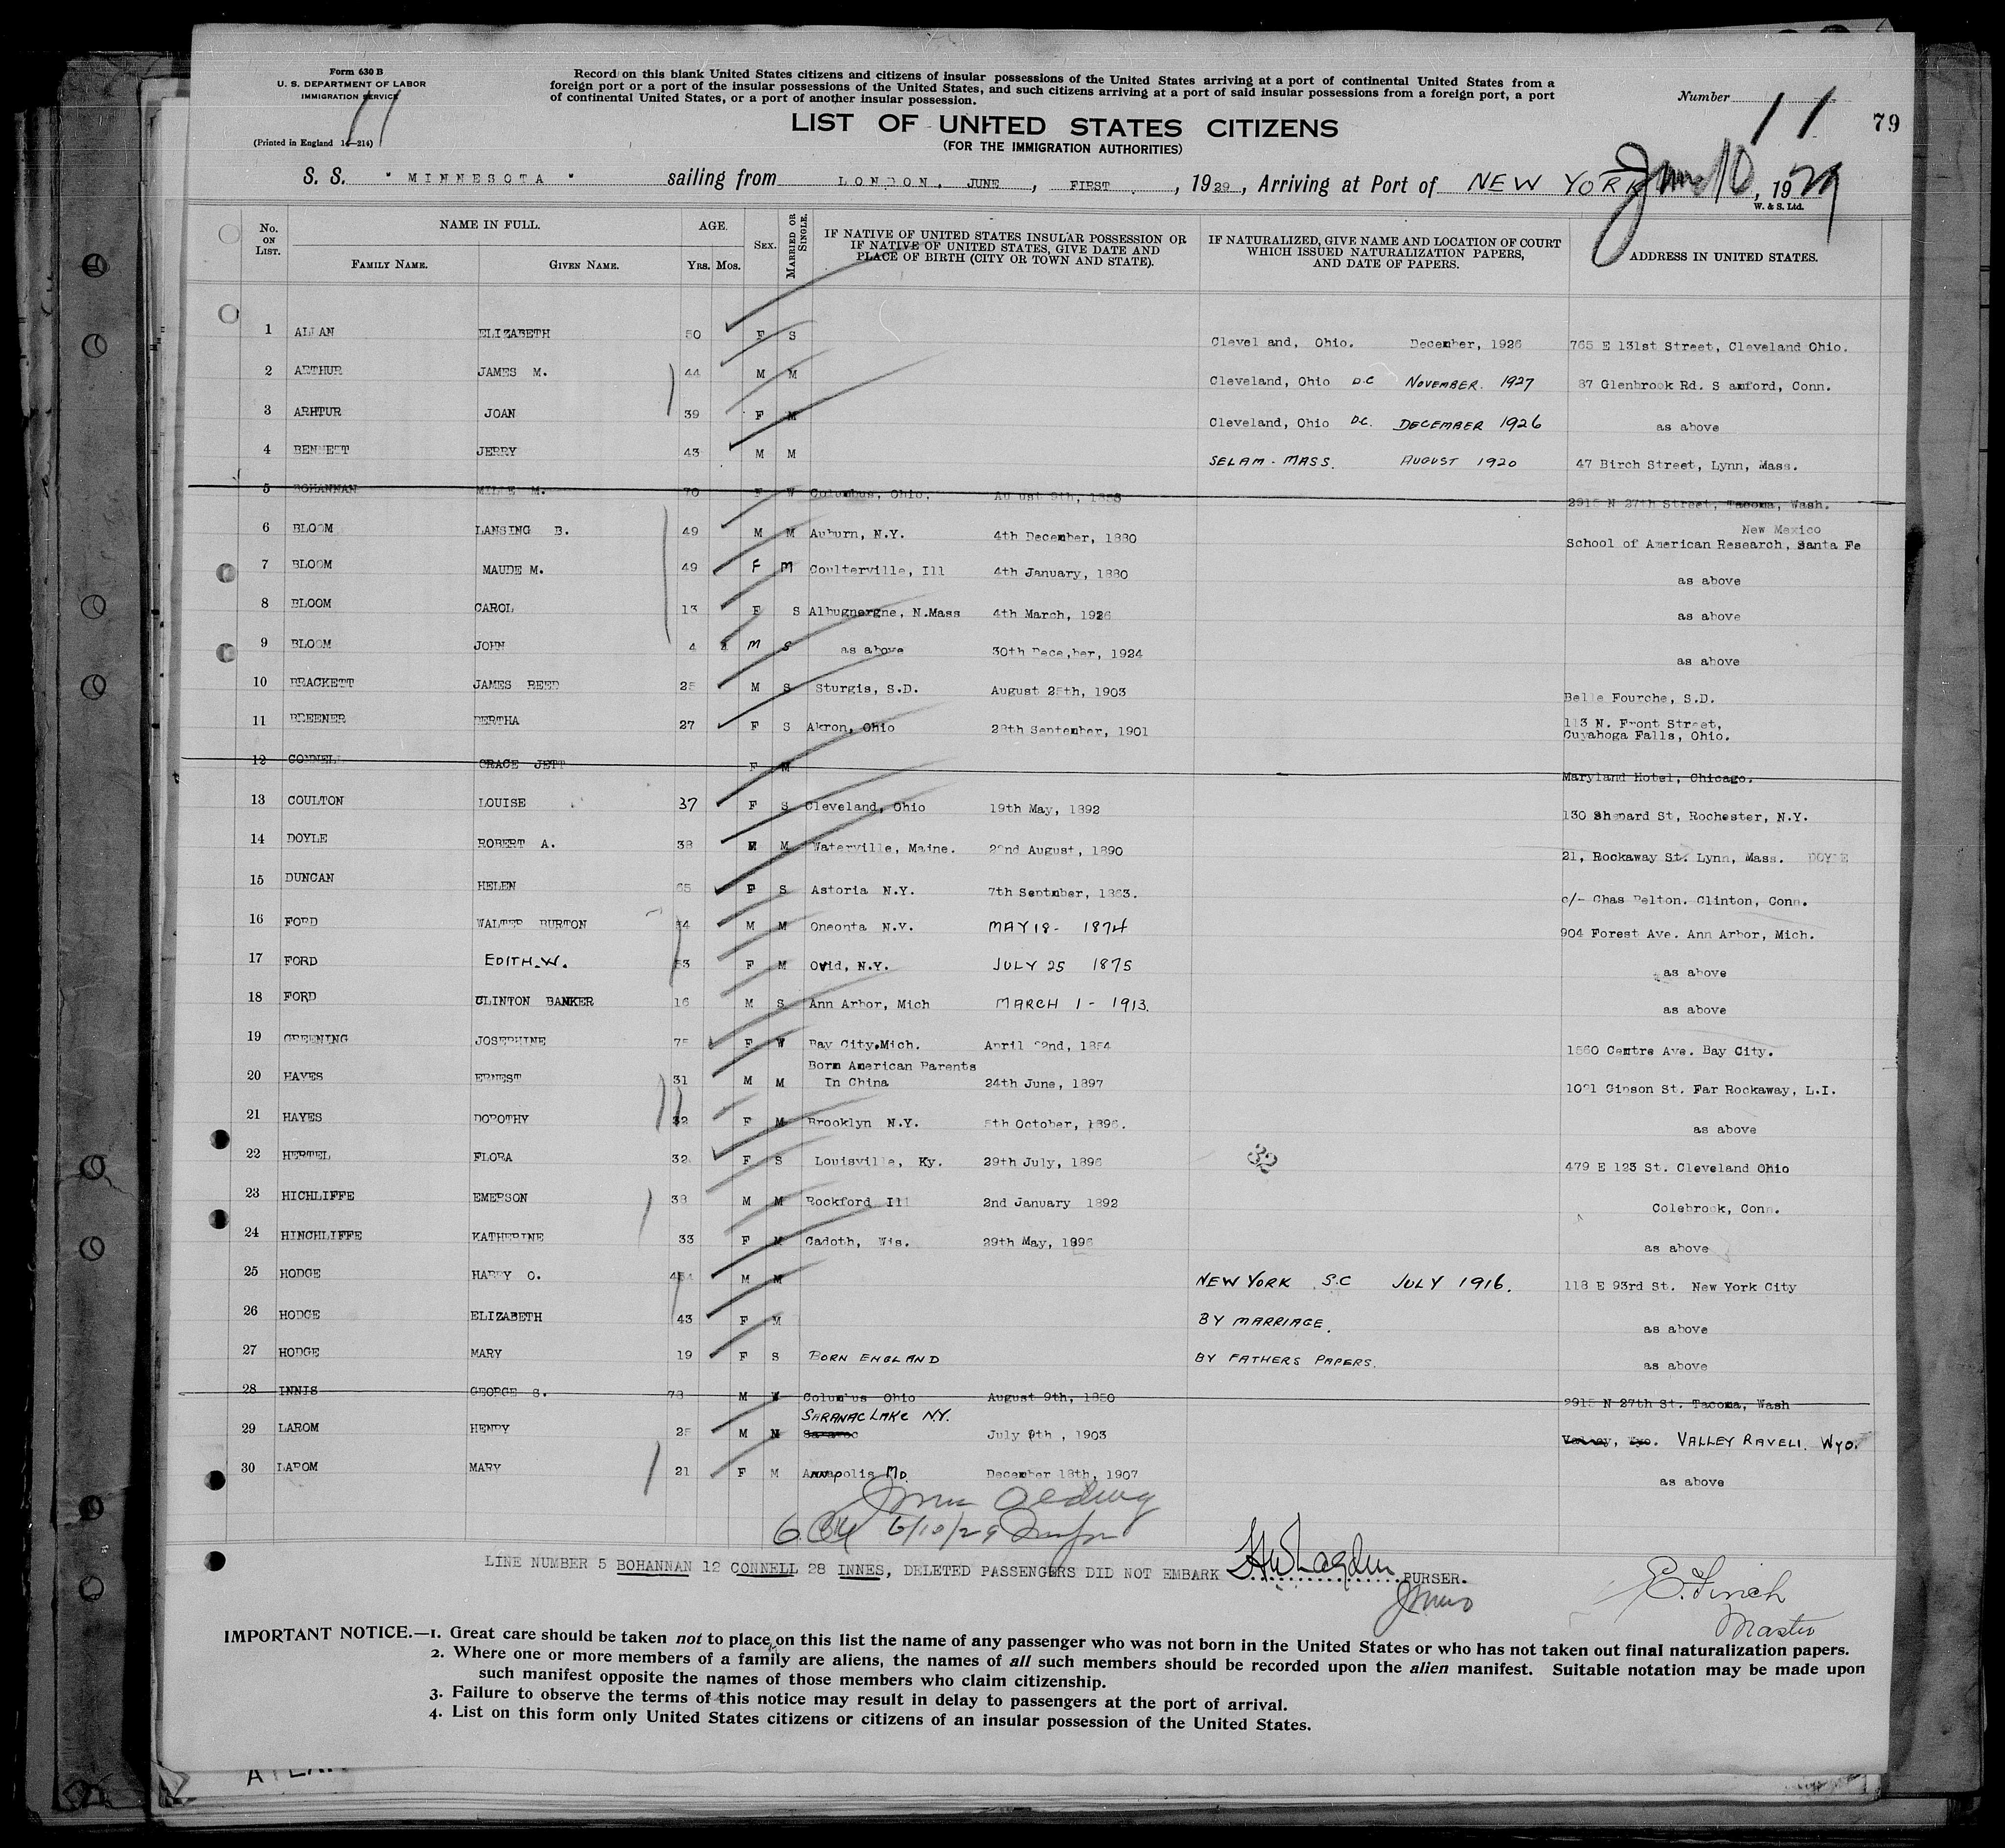 Form 630 B
U. S. DEPARTMENT OF LABOR
IMMIGRATION SERVICE
11
(Printed in England 14—214)
Record on this blank United States citizens and citizens of insular possessions of the United States arriving at a port of continental United States from a
foreign port or a port of the insular possessions of the United States, and such citizens arriving at a port of said insular possessions from a foreign port, a port
of continental United States, or a port of another insular possession.
Number 11
79
LIST OF UNITED STATES CITIZENS
(FOR THE IMMIGRATION AUTHORITIES)
S. S. "MINNESOTA" sailing from LONDON, JUNE, FIRST, 1929, Arriving at Port of NEW YORK June 10, 1929
W. & S. Ltd.
No. ON LIST. NAME IN FULL. FAMILY NAME. GIVEN NAME. AGE. Yrs. Mos. SEX. MARRIED OR SINGLE. IF NATIVE OF UNITED STATES INSULAR POSSESSION OR IF NATIVE OF UNITED STATES, GIVE DATE AND PLACE OF BIRTH (CITY OR TOWN AND STATE). IF NATURALIZED, GIVE NAME AND LOCATION OF COURT WHICH ISSUED NATURALIZATION PAPERS, AND DATE OF PAPERS. ADDRESS IN UNITED STATES.
1 ALLAN ELIZABETH 50 F S Clevel and, Ohio. December, 1926 765 E 131st Street, Cleveland Ohio.
2 ARTHUR JAMES M. 44 M M Cleveland, Ohio D.C NOVEMBER. 1927 87 Glenbrook Rd. S amford, Conn.
3 ARHTUR JOAN 39 F M Cleveland, Ohio D.C. DECEMBER 1926 as above
4 BENNETT JERRY 43 M M SELAM - MASS. AUGUST 1920 47 Birch Street, Lynn, Mass.
5 BOHANNAN M. 70 F W Columbus, Ohio. 9th, 2915 N 27th Street, Tacoma, Wash.
6 BLOOM LANSING B. 49 M M Auburn, N.Y. 4th December, 1880 New Mexico
School of American Research, Santa Fe
7 BLOOM MAUDE M. 49 F M Coulterville, Ill 4th January, 1880 as above
8 BLOOM CAROL 13 F S Albugnergne, N.Mass 4th March, 1926 as above
9 BLOOM JOHN 4 M S as above 30th Dece,ber, 1924 as above
10 BRACKETT JAMES REED 25 M S Sturgis, S.D. August 25th, 1903 Belle Fourche, S.D.
11 BREENER BERTHA 27 F S Akron, Ohio 28th September, 1901 113 N. Front Street,
Cuyahoga Falls, Ohio.
12 CONNELL GRACE JETT F M Maryland Hotel, Chicago.
13 COULTON LOUISE 37 F S Cleveland, Ohio 19th May, 1892 130 Shepard St, Rochester, N.Y.
14 DOYLE ROBERT A. 38 M M Waterville, Maine. 22nd August, 1890 21, Rockaway St. Lynn, Mass. DOYLE
15 DUNCAN HELEN 65 F S Astoria N.Y. 7th Septmber, 1863. c/- Chas Pelton. Clinton, Conn.
16 FORD WALTER BURTON 54 M M Oneonta N.Y. MAY 18 - 1874 904 Forest Ave. Ann Arbor, Mich.
17 FORD EDITH. W. 53 F M Ovid, N.Y. JULY 25 1875 as above
18 FORD CLINTON BANKER 16 M S Ann Arbor, Mich MARCH 1 - 1913. as above
19 GREENING JOSEPHINE 75 F W Bay City.Mich. April 22nd, 1854 1560 Centre Ave. Bay City.
20 HAYES ERNEST 31 M M Born American Parents
In China 24th June, 1897 1021 Gipson St. Far Rockaway, L.I.
21 HAYES DOROTHY 32 F M Brooklyn N.Y. 5th October, 1896. as above
22 HERTEL FLORA 32 F S Louisville, Ky. 29th July, 1896 32 479 E 123 St. Cleveland Ohio
23 HICHLIFFE EMERSON 38 M M Rockford Ill 2nd January 1892 Colebrook, Conn.
24 HINCHLIFFE KATHERINE 33 F M Cadoth, Wis. 29th May, 1896 as above
25 HODGE HARRY O. M M NEW YORK S.C JULY 1916. 118 E 93rd St. New York City
26 HODGE ELIZABETH 43 F M BY MARRIAGE. as above
27 HODGE MARY 19 F S BORN ENGLAND BY FATHERS PAPERS. as above
28 INNIS GEORGE S. 78 M W Columbus Ohio August 9th, 1850 2915 N 27th St. Tacoma, Wash
29 LAROM HENRY 25 M M SARANAC LAKE N.Y. Saranac July 9th, 1903 Valley, Wyo. VALLEY RAVELI. WYO.
30 LAROM MARY 21 F M Annapolis MD. December 18th, 1907 as above
6/10/29
LINE NUMBER 5 BOHANNAN 12 CONNELL 28 INNES, DELETED PASSENGERS DID NOT EMBARK PURSER.
E. Finch
Master
IMPORTANT NOTICE.—1. Great care should be taken not to place on this list the name of any passenger who was not born in the United States or who has not taken out final naturalization papers.
2. Where one or more members of a family are aliens, the names of all such members should be recorded upon the alien manifest. Suitable notation may be made upon
such manifest opposite the names of those members who claim citizenship.
3. Failure to observe the terms of this notice may result in delay to passengers at the port of arrival.
4. List on this form only United States citizens or citizens of an insular possession of the United States.